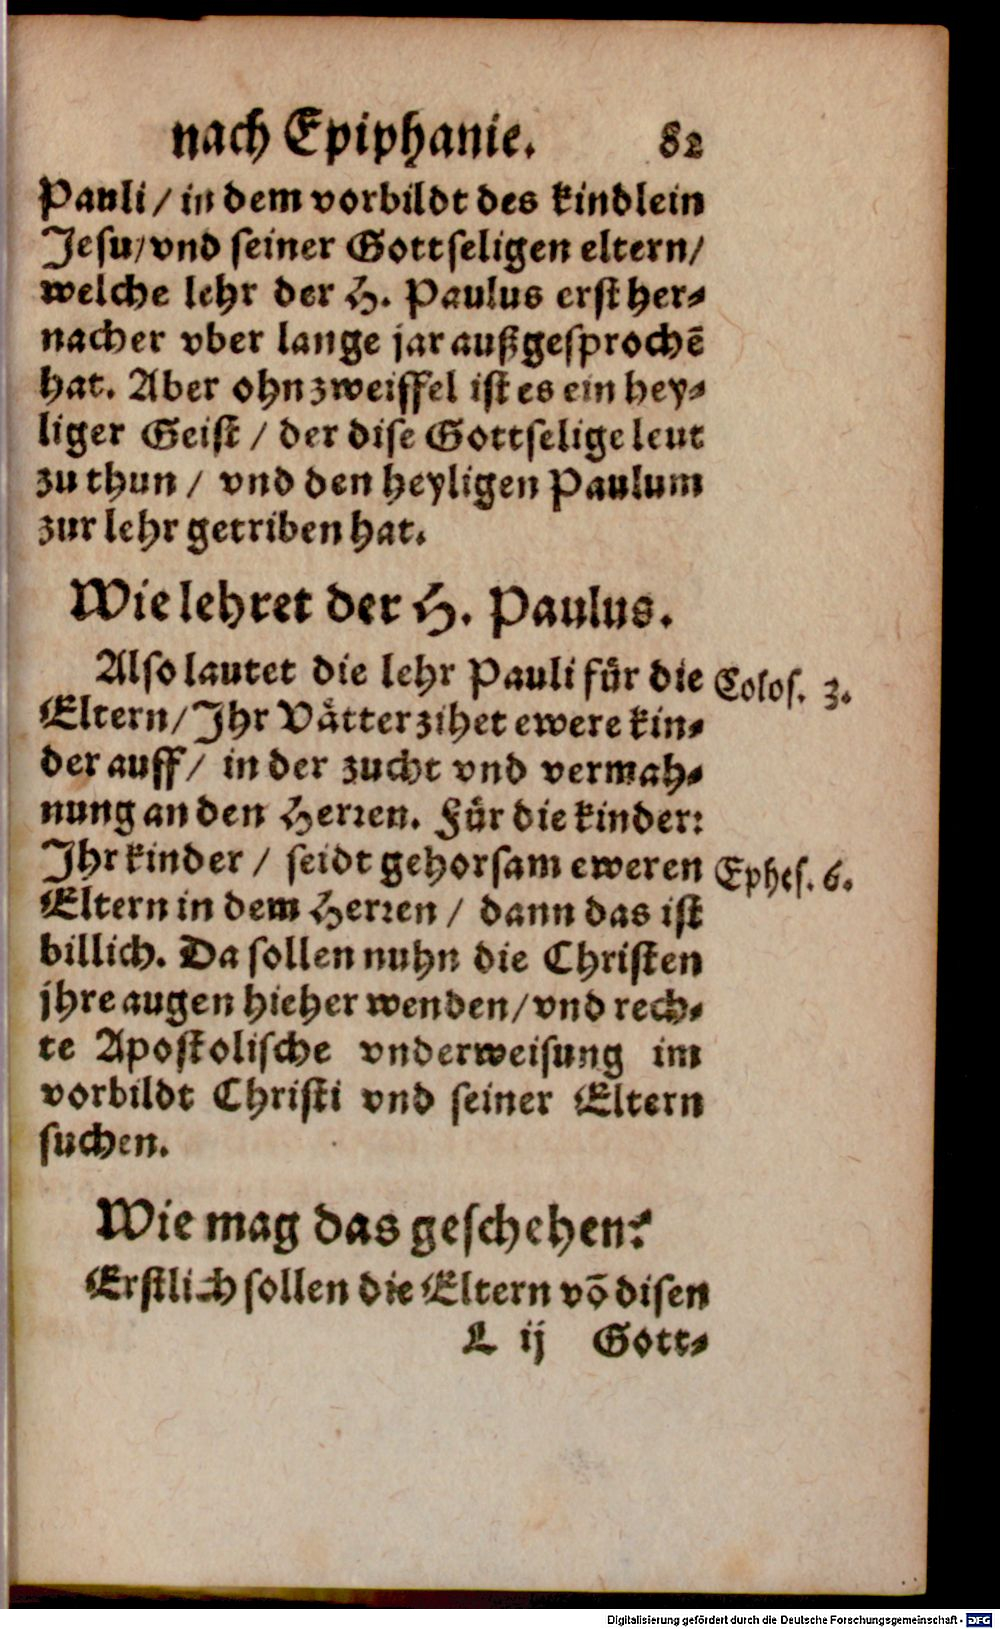 nach Epiphanie. 82
Pauli / in dem vorbildt des kindlein
Jesu / vnd seiner Gottseligen eltern /
welche lehr der H. Paulus erst her-
nacher vber lange jar außgesprochē
hat. Aber ohn zweiffel ist es ein hey-
liger Geist / der dise Gottselige leut
zu thun / vnd den heyligen Paulum
zur lehr getriben hat.
Wie lehret der H. Paulus.
Also lautet die lehr Pauli für die Colos. 3.
Eltern / Ihr Vätter zihet ewere kin-
der auff / in der zucht vnd vermah-
nung an den Herren. Für die kinder:
Ihr kinder / seidt gehorsam eweren Ephes. 6.
Eltern in dem Herren / dann das ist
billich. Da sollen nuhn die Christen
jhre augen hieher wenden / vnd rech-
te Apostolische vnderweisung im
vorbildt Christi vnd seiner Eltern
suchen.
Wie mag das geschehen?
Erstlich sollen die Eltern vō disen
L ij Gott-
Digitalisierung gefördert durch die Deutsche Forschungsgemeinschaft - DFG